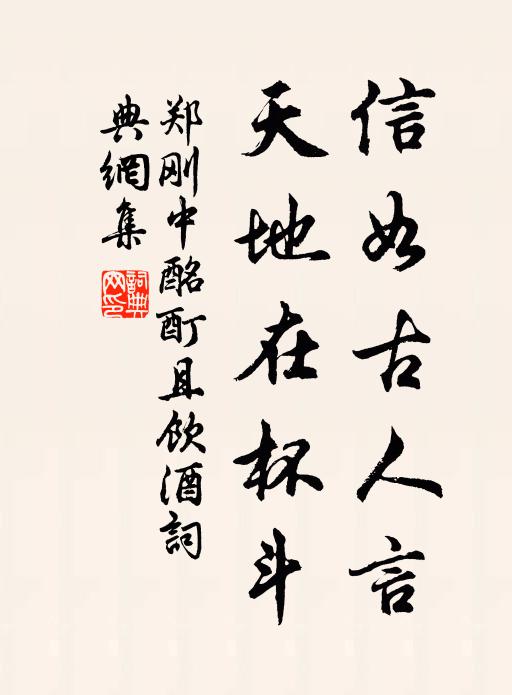 信如古人言
天地在杯斗
郑刚中酩酊且饮酒詞
典網集
詞典
网印